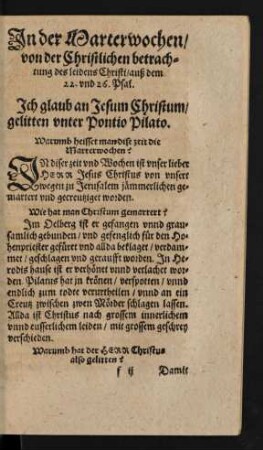 In der Marterwochen/
von der Christlichen betrach-
tung des leidens Christi/auß dem
22. vnd 26. Psal.
Ich glaub an Jesum Christum/
gelitten vnter Pontio Pilato.
Warumb heisset man diß zeit die
Marterwochen?
IN diser zeit vnd Wochen ist vnser lieber
HERR Jesus Christus von vnsert
wegen zu Jerusalem jämmerlichen ge-
martert vnd gecreutziget worden.
Wie hat man Christum gemartert?
Im Oelberg ist er gefangen vnnd grau-
samlich gebunden/ vnd gefenglich für den Ho-
henpriester gefüret vnd allda beklaget/ verdam-
met/ geschlagen vnd geraufft worden. In He-
rodis hause ist er verhönet vnnd verlachet wor-
den. Pilatus hat jn krönen/ verspotten/ vnnd
endlich zum todte verurtheilen/ vnnd an ein
Creutz zwischen zween Mörder schlagen lassen.
Allda ist Christus nach grossem innerlichem
vnnd eusserlichem leiden/ mit grossem geschrey
verschieden.
Warumb hat der HERR Christus
also gelitten?
f ij Damit